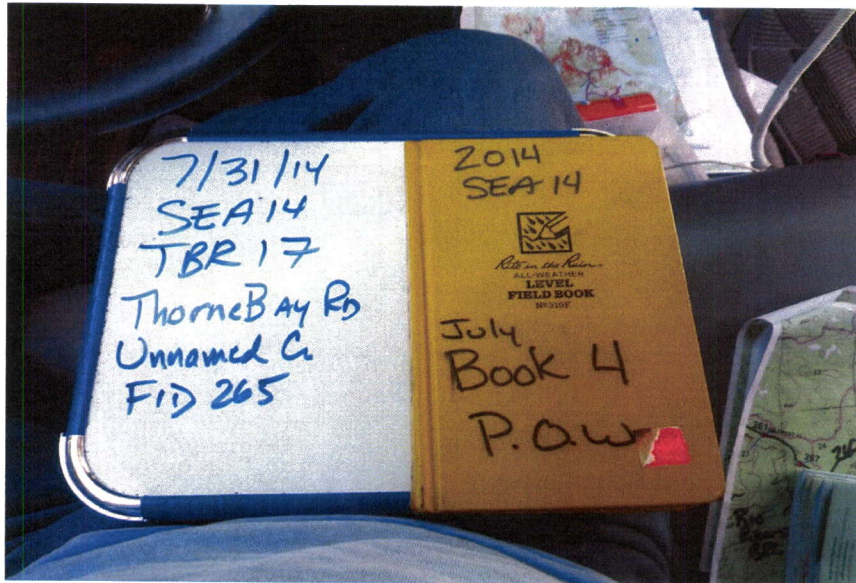 7/31/14
SEA 14
TBR 17
Thorne Bay RD
Unnamed Cr.
FID 265
2014
SEA 14
Rite in the Rain
ALL-WEATHER
LEVEL
FIELD BOOK
Nº 310F
July
Book 4
P.O.W